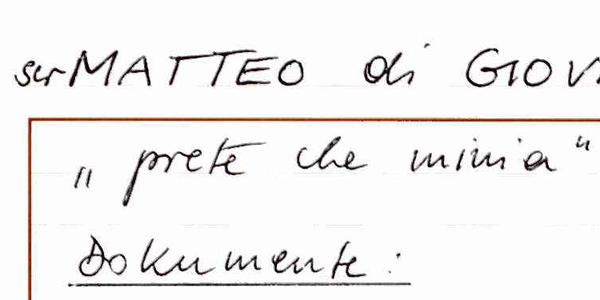 ser MATTEO di GIOV
„ prete che minia“
Dokumente: